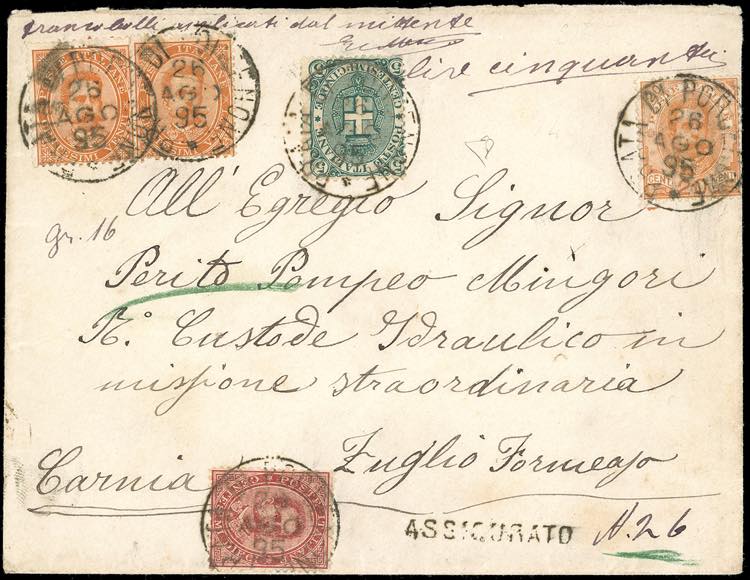 francobolli applicati dal mittente
lire cinquanta
26
AGO
95
26
AGO
95
POSTE ITALIANE
26
AGO
95
gr. 16
All' Egregio Signor
Perito Pompeo Mingori
R.° Custode Idraulico in
missione straordinaria
Carnia Zuglio Formeaso
AGO
95
ASSICURATO
N. 26